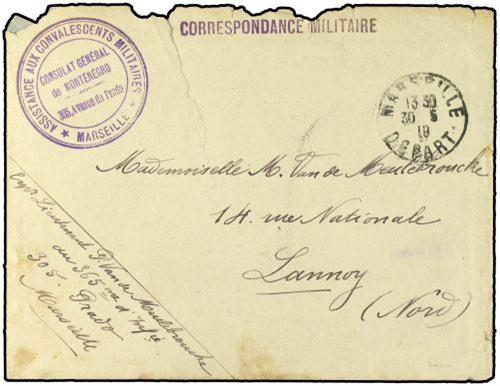 CORRESPONDANCE MILITAIRE
ASSISTANCE AUX CONVALESCENTS MILITAIRES
CONSULAT GÉNÉRAL
de MONTÉNÉGRO
305, Avenue du Prado
★ MARSEILLE ★
MARSEILLE
13 30
30 - 5
19
DEPART
Mademoiselle M. Van de Meulebrouche
14. rue Nationale
Lannoy
(Nord)
Expr Lieutenant P. Van de Meulebrouche
du 365 me d'Infie
305. Prado
Marseille